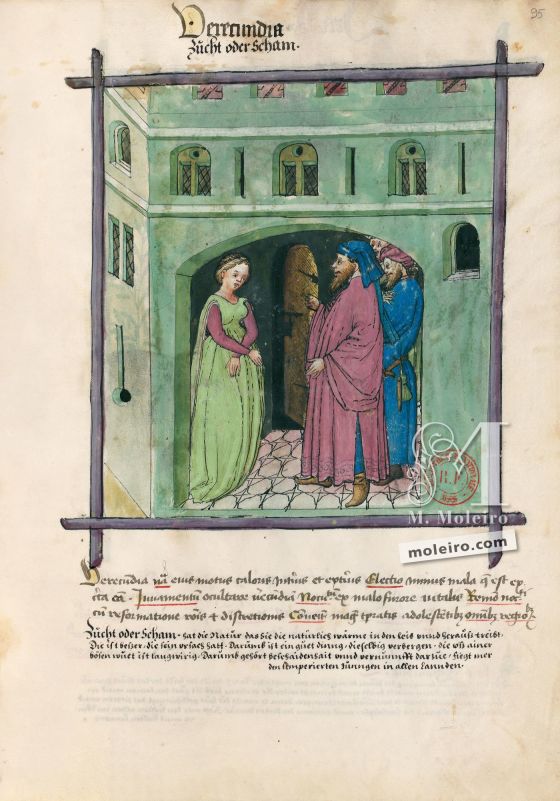 95
Verecundia
Zücht oder Scham.
M. Moleiro
moleiro.com
Verecundia nā eius motus caloris intrīus et exterius Electio minus mala q̄ est ex
cta cā. Iuvamentū occultare verecundia Nocu ex malo furore vitalis Remō noc
cū reformatione rōis et discretionis Convēit mag tpratis adolescētibȝ omībȝ regiōbȝ
Zücht oder Scham. hat die Natur das sie die natürlich wärme in den leib unnd heraufs treibt.
Die ist besser, die sein ursach hatt. Darumb ist ein guet dinng, dieselbig verbergen, die uss ainer
bösen wüet ist taugwirig. Darumb gehört beschaidenhait unnd vernunnft dar zue, siegt mer
den temperierten Junngen in allen Lannden.